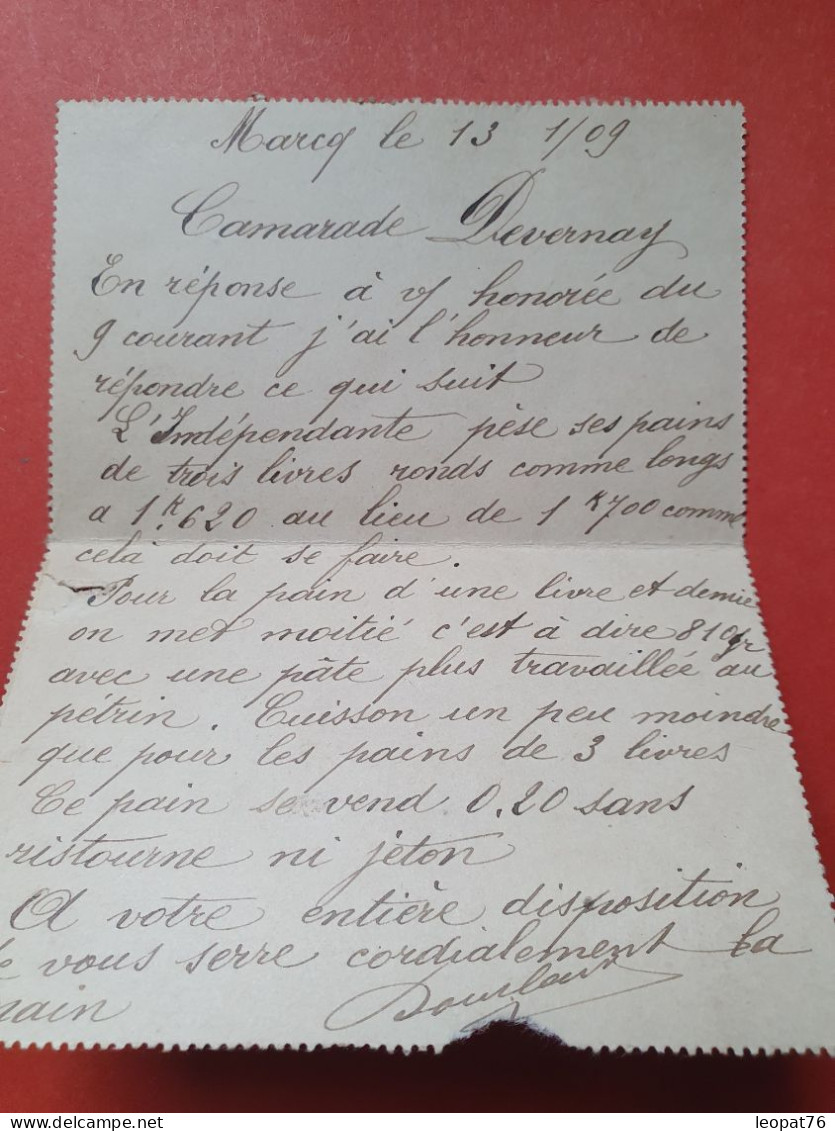 Marcq le 13 1/09
Camarade Devernay
En réponse à v/ honorée du
9 courant j'ai l'honneur de
répondre ce qui suit
L'Indépendante pèse ses pains
de trois livres ronds comme longs
a 1K.620 au lieu de 1K700 comme
celà doit se faire.
Pour la pain d'une livre et demie
on met moitié c'est à dire 810gr
avec une pâte plus travaillée au
pétrin. Cuisson un peu moindre
que pour les pains de 3 livres
Ce pain se vend 0.20 sans
ristourne ni jéton
A votre entière disposition
Je vous serre cordialement la
main
leopat76